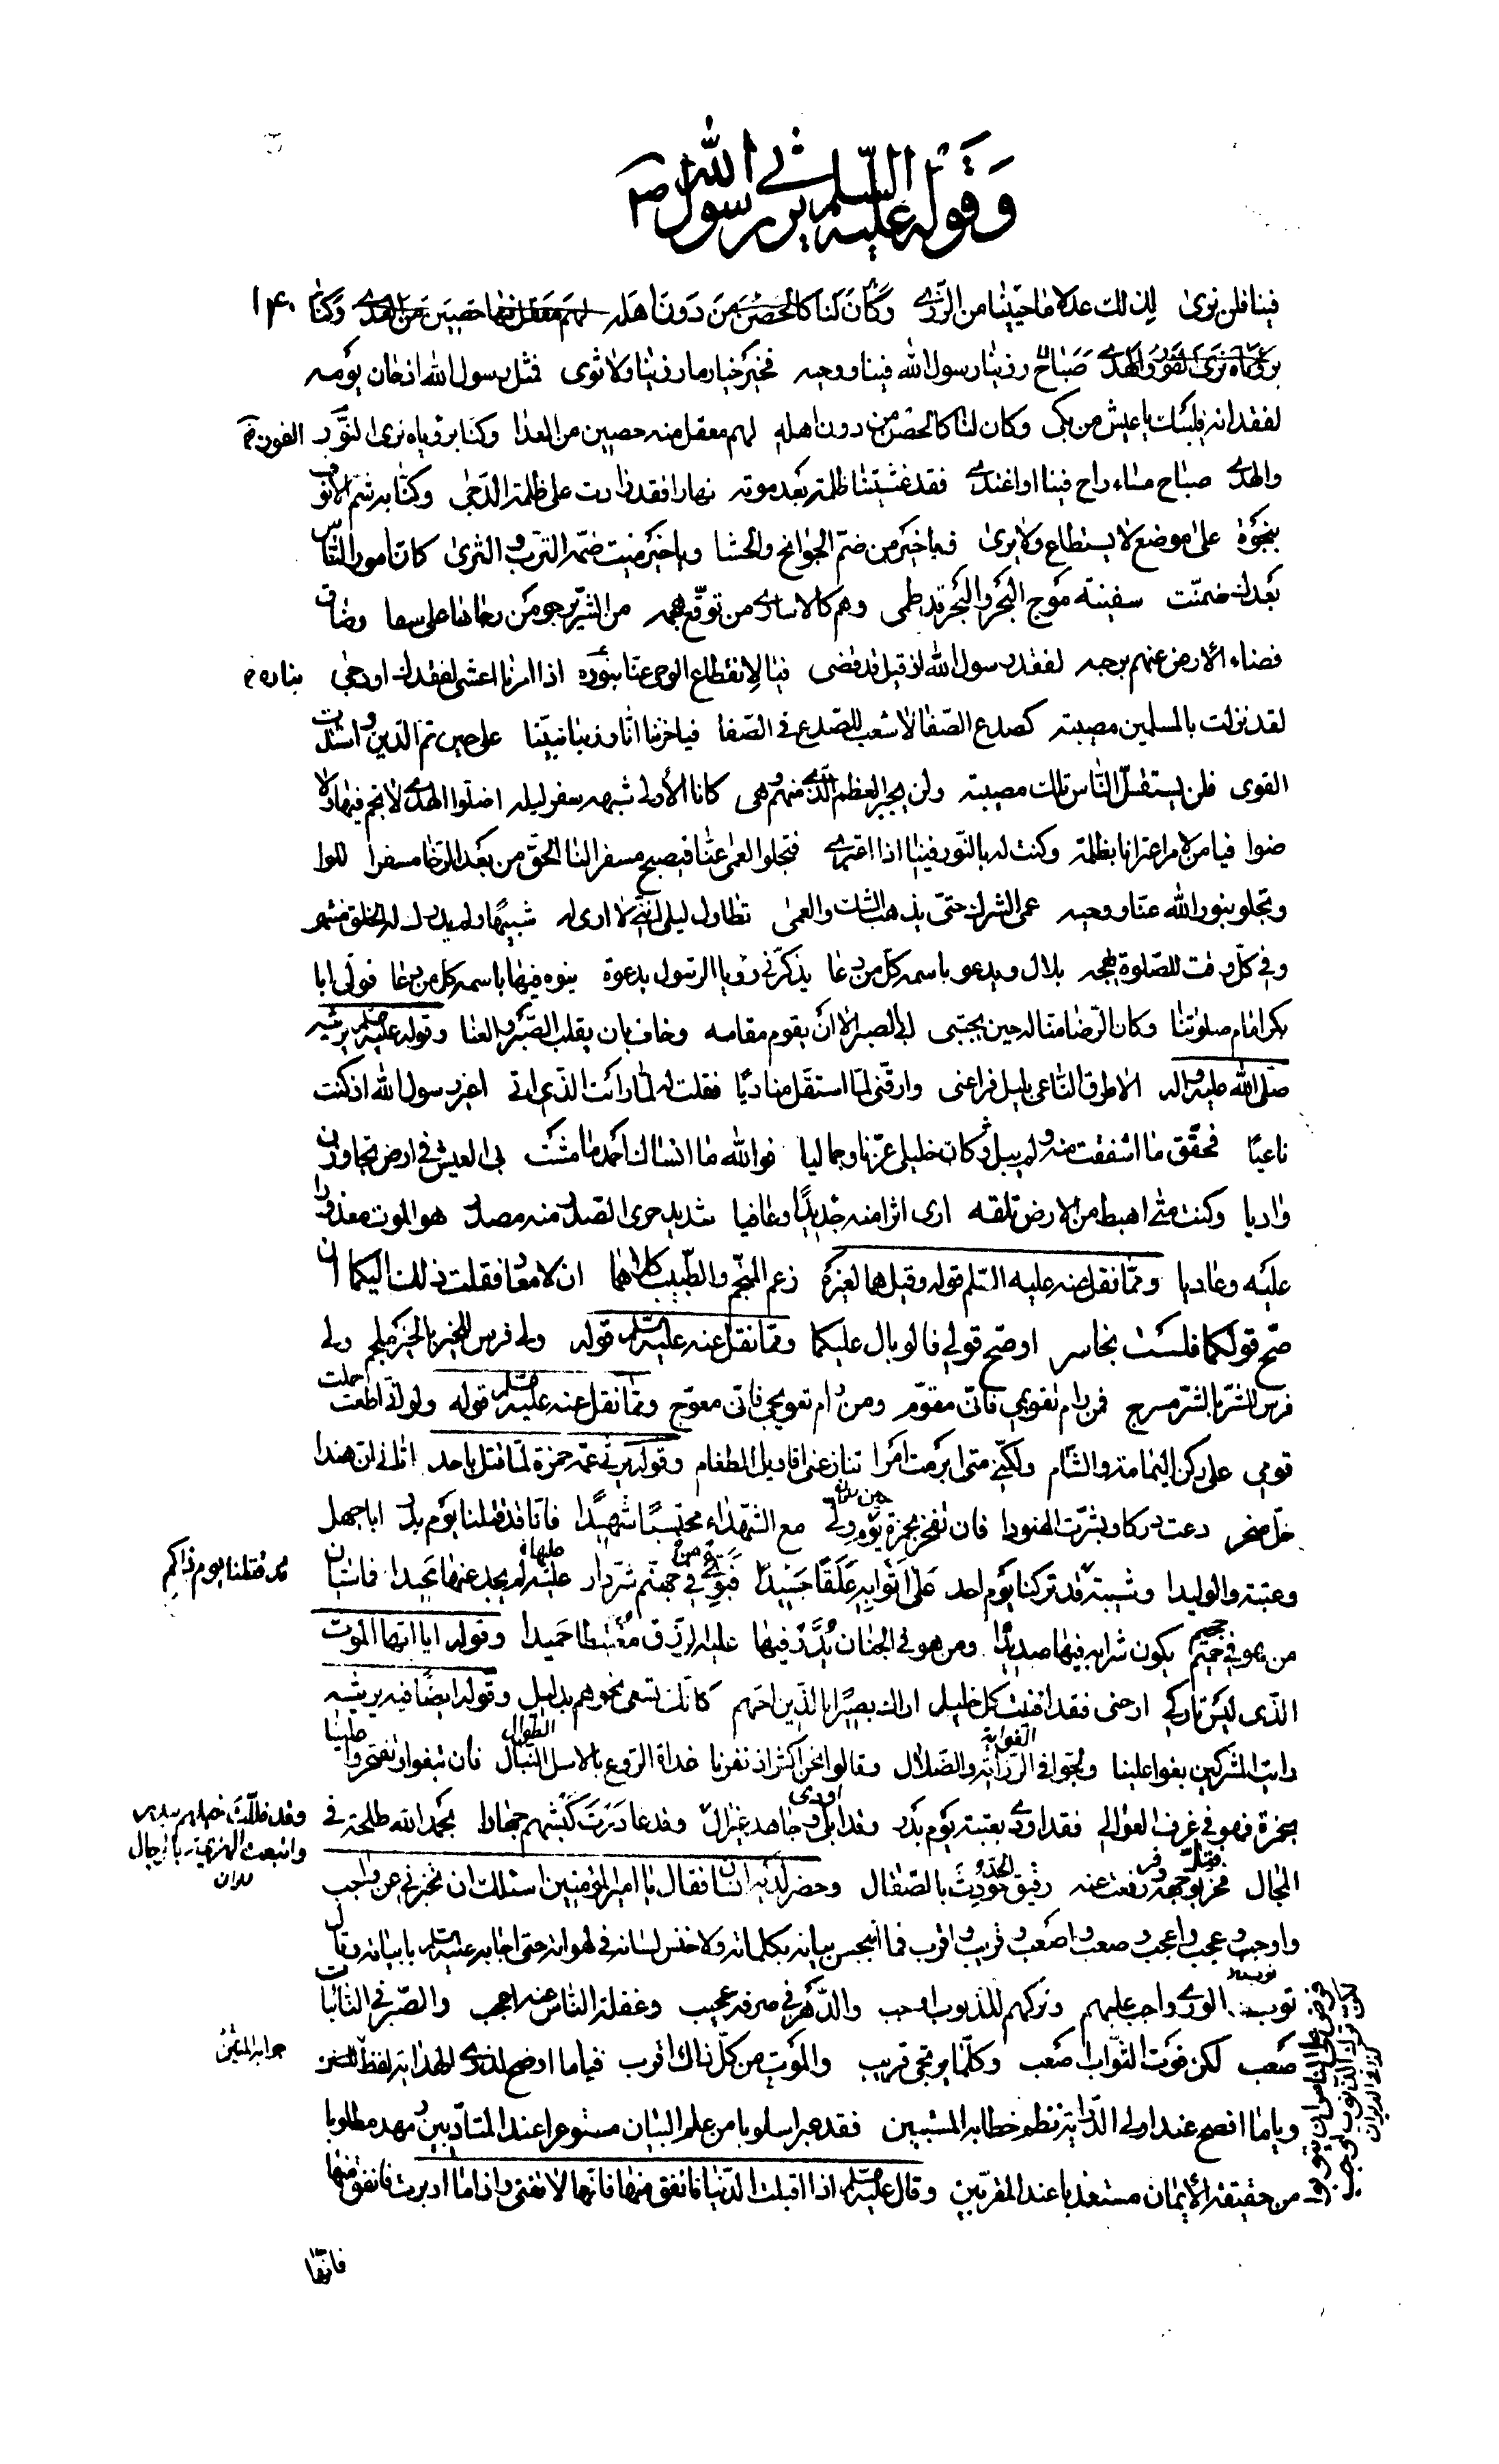 وقوله عليه السلم في يرثي رسول الله ص
فينا فلن نرى لذلك عدلا ما حيينا من الردى وكان لنا كالحصن من دون اهله لهم معقل فيها حصين من الهدى وكنا ١٤٠
برؤياه نرى النور والهدى صباح رزينا رسول الله فينا ووحيه فخير خيار ما رزينا ولا ثوى فمثل رسول الله اذ حان يومه
لفقدانه فليبك يا عيش من بكى وكان لنا كالحصن من دون اهله لهم معقل منه حصين من العدا وكنا برؤياه نرى النور
والهدى صباح مساء راح فينا او اغتدى فقد غشيتنا ظلمة بعد موته نهارا فقد زادت على ظلمة الدجى وكنا به شم الانوف
بنجوة على موضع لا يستطاع ولا يرى فيا خير من ضم الجوانح والحشا ويا خير ميت ضمه الترب والثرى كان امور الناس
بعدك ضمنت سفينة موج البحر والبحر قد طمى وهم كالاسارى من توقع هجمه من الشر يرجو من رجاها على شفا وضاق
فضاء الأرض عنهم برحبه لفقد رسول الله اذ قيل قد قضى فيا لانقطاع الوحي عنا بنوره اذا امرنا اعشى لفقدك او دجى بناره
لقد نزلت بالمسلمين مصيبة كصدع الصفا لا شعب للصدع في الصفا فيا حزنا انا رزينا نبينا على حين تم الدين واشتدت
القوى فلن يستقل الناس تلك مصيبة ولن يجبر العظم الذي منهم وهى كانا الأولى شبهه سفر ليلة اضلوا الهدى لا نجم فيها ولا
ضوا فيا من لامر اعترانا بظلمة وكنت له بالنور فينا اذا اعترى فتجلو العمى عنا فيصبح مسفرا لنا الحق من بعد الرخا مسفرا اللوا
وتجلو بنور الله عنا ووحيه عمى الشرك حتى يذهب الشك والعمى تطاول ليلي انني لا ارى له شبيها ولم يدرك له الخلق منتهى
وفي كل وقت للصلوة يهيجه بلال ويدعو باسمه كل من دعا يذكرني رؤيا الرسول بدعوة ينوه فيها باسمه كل من دعا فولى ابا
بكر امام صلوتنا وكان الرضا منا له حين يجتبى ابى الصبر الا ان يقوم مقامه وخاف بان يقلب الصبر والعنا وقوله عليه السلم يرثيه
صلى الله عليه واله الا طرق الناعي بليل فراعني وارقني لما استقل مناديا فقلت له لما رايت الذي اتى اغير رسول الله اذ كنت
ناعيا فحقق ما اشفقت منه ولم يبل وكان خليلي عزنا وجماليا فوالله ما انساك احمد ما مشت بي العيش في ارض وتجاوزن
واديا وكنت متى اهبط من الارض تلقه ارى اثرا منه جديدا وعافيا شديد حرى الصدر منه مصدر هو الموت معذورا
عليه وعاديا ومما نقل عنه عليه السلم قوله وقيل هما لغيره زعم المنجم والطبيب كلاهما ان لا معاد فقلت ذلك اليكما ان
صح قولكما فلست بخاسر او صح قولي فالوبال عليكما ومما نقل عنه عليه السلم قوله ولي فرس للخير بالخير ملجم ولي
فرس للشر بالشر مسرج فمن رام تقويمي فاني مقوم ومن رام تعويجي فاني معوج ومما نقل عنه عليه السلم قوله ولو اني اطعت حملت
قومي على ركن اليمامة والشام ولكني متى ابرمت امرا تنازعني اقاويل الطغام وقوله يرثي عمه حمزة لما قتل باحد اتاني ان هندا
حل صخر دعت دركا وبشرت الهنودا فان تفخر بحمزة يوم ولى مع الشهداء محتسبا شهيدا فانا قد قتلنا يوم بدر ابا جهل
وعتبة والوليدا وشيبة قد تركنا يوم احد على اثوابه علقا جسيدا فبوئ في جهنم شر دار عليه لم يجد عنها محيدا فاسيان قد قتلنا يوم ذاكم
من هو في جحيم يكون شرابه فيها صديدا ومن هو في الجنان يدر فيها عليه الرزق مغتبطا حميدا وقوله ايا ايها الموت
الذي ليس تاركي ارحني فقد افنيت كل خليل اراك بصيرا بالذين احبهم كانك تسعى نحوهم بدليل وقوله ايضا فيه يرثيه
رايت المشركين بغوا علينا ولجوا في الغواية والضلال وقالوا نحن اكثر اذ نفرنا غداة الروع بالاسل الطوال فان تبغوا وتفخروا علينا
بحمزة فهو في غرف العوالي فقد اودى بعتبة يوم بدر وقد ابلى وجاهد غير ال وقد غادرت كبشهم جهارا بحمد الله طلحة في
المجال فخر لوجهه ورفعت عنه رقيق الحد حودث بالصقال وحضر لديه انسان فقال يا امير المؤمنين اسئلك ان تخبرني عن واجب
واوجب وعجيب واعجب وصعب واصعب وقريب واقرب فما انبجس بيانه بكلماته ولا خنس لسانه في لهواته حتى اجابه عليه السلم بابياته وقال
توب الورى واجب عليهم وتركهم للذنوب اوجب والدهر في صرفه عجيب وغفلة الناس عنه اعجب والصبر في النائبات
صعب لكن فوت الثواب اصعب وكلما يرتجى قريب والموت من كل ذاك اقرب فياما اوضح لذوي الهداية لفظ المتين جوابه المتين
وياما افصح عند اولى الدراية نظم خطابه المستبين فقد عبر اسلوبا من علم البيان مستوعرا عند المتادبين ومهد مطلوبا
من حقيقة الأيمان مستعذبا عند المقربين وقال عليه السلم اذا اقبلت الدنيا فانفق منها فانها لا تفنى واذا ما ادبرت فانفق منها
فانها